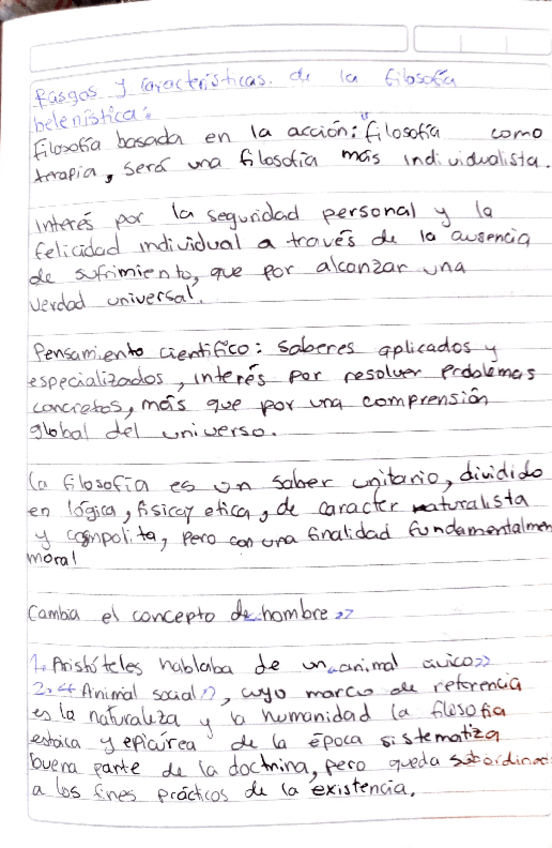 Rasgos y características. de la filosofía
helenística:
Filosofía basada en la acción: "filosofía como
terapia, será una filosofía más individualista.
Interés por la seguridad personal y la
felicidad individual a través de la ausencia
de sufrimiento, que por alcanzar una
verdad universal.
Pensamiento científico: saberes aplicados y
especializados, interés por resolver problemas
concretos, más que por una comprensión
global del universo.
La filosofía es un saber unitario, dividido
en lógica, física y etica, de caracter naturalista
y cosmpolita, pero con una finalidad fundamentalmen
moral
Cambia el concepto de hombre »
1. Aristóteles hablaba de un «animal cívico»
2. «Animal social», cuyo marco de referencia
es la naturaleza y la humanidad la filosofia
estoica y epicúrea de la época sistematiza
buena parte de la doctrina, pero queda subordinad
a los fines prácticos de la existencia.